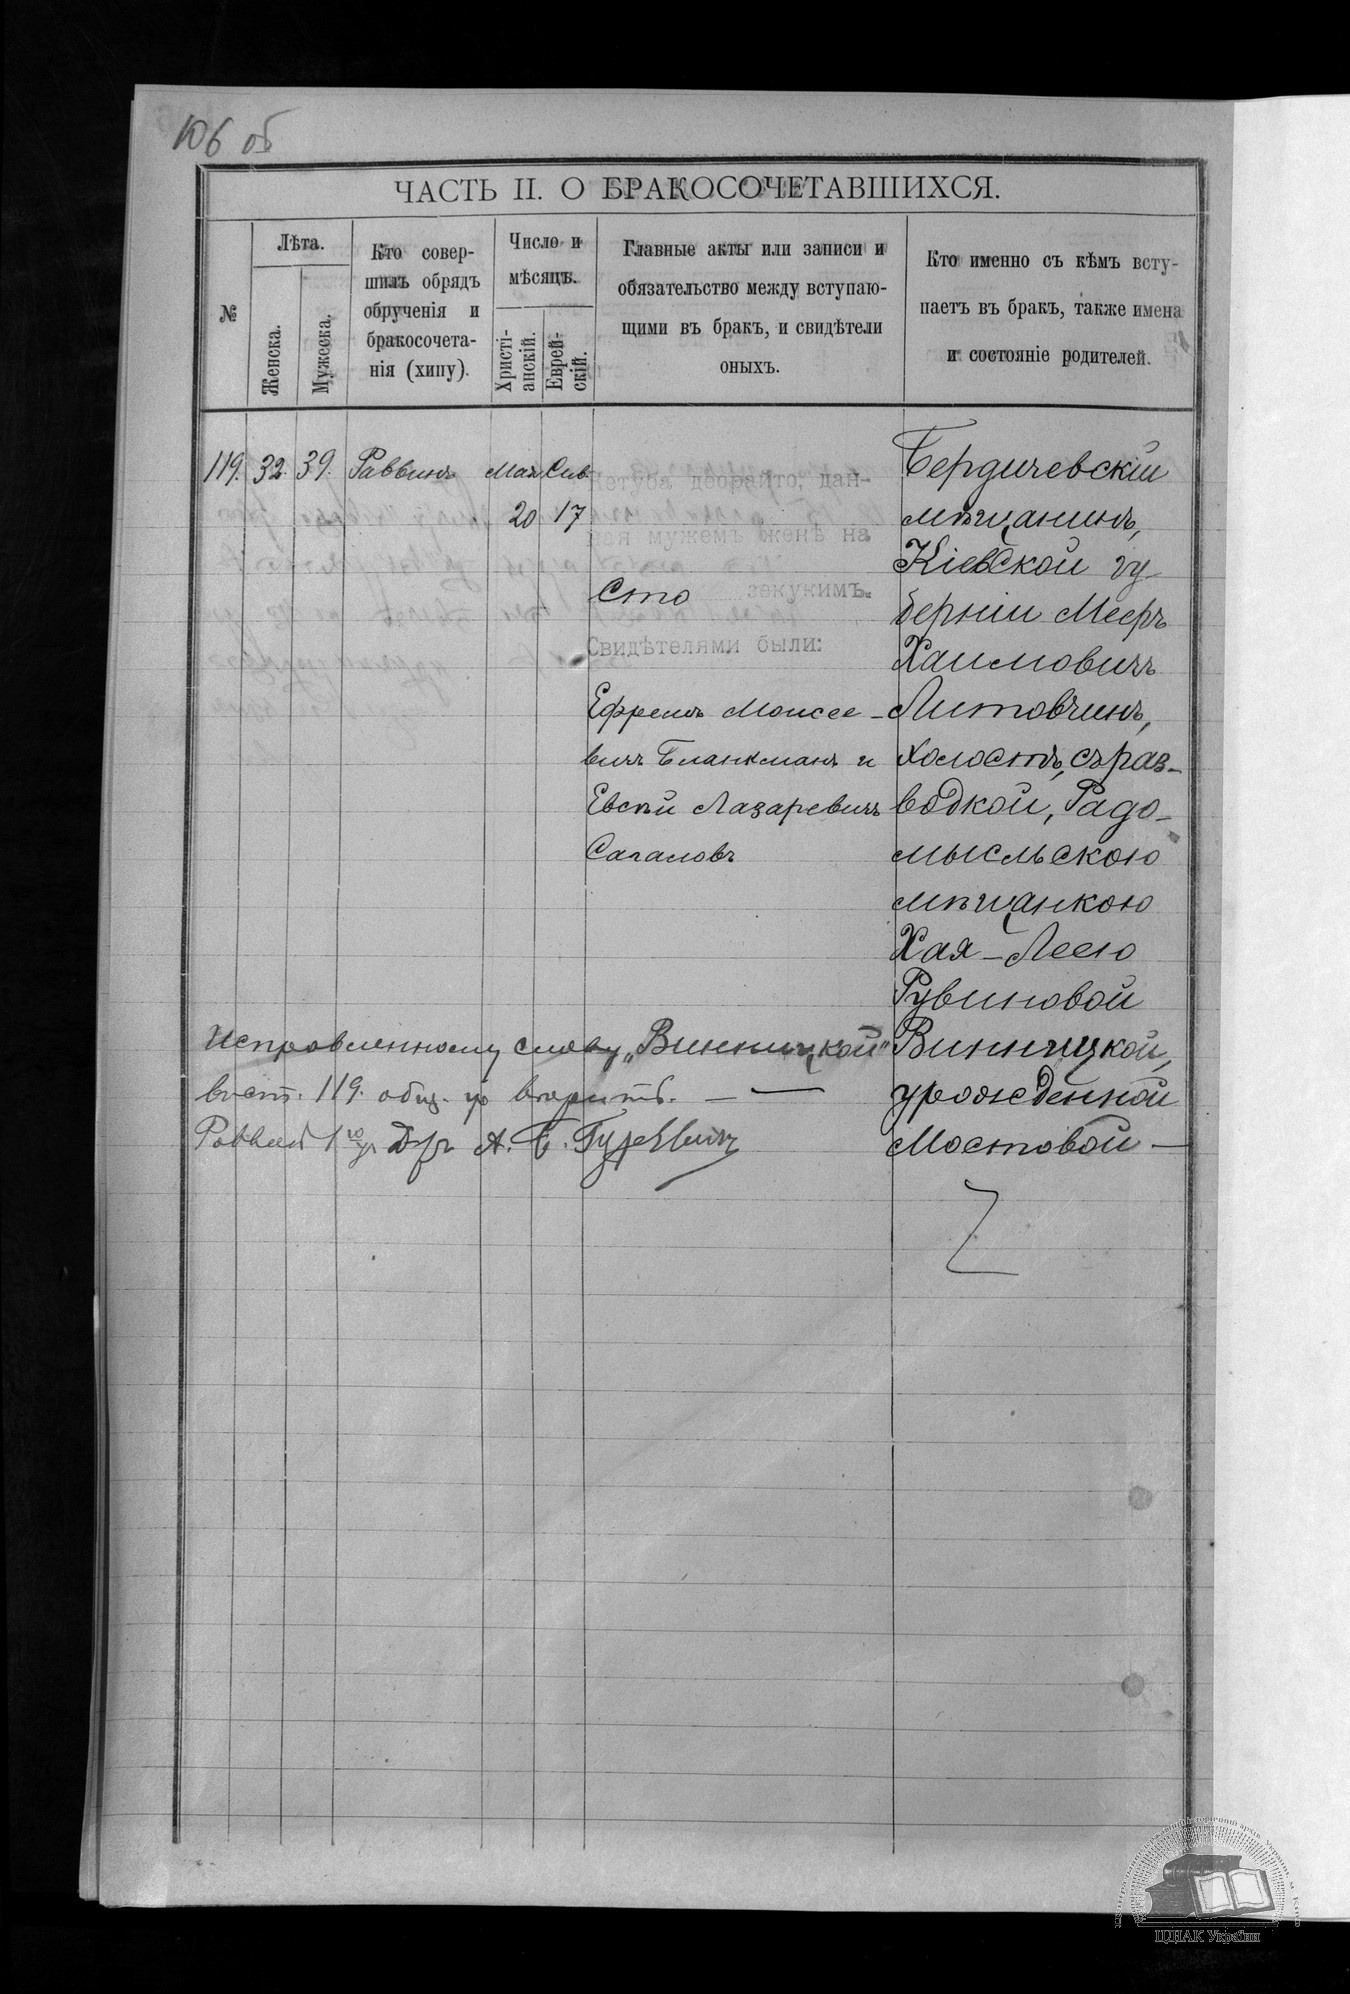 106 об
ЧАСТЬ II. О БРАКОСОЧЕТАВШИХСЯ.
№
Лѣта.
Женска.
Мужеска.
Кто совер-
шилъ обрядъ
обрученія и
бракосочета-
нія (хипу).
Число и
мѣсяцъ.
Христі-
анскій.
Еврей-
скій.
Главные акты или записи и
обязательство между вступаю-
щими въ бракъ, и свидѣтели
оныхъ.
Кто именно съ кѣмъ всту-
паетъ въ бракъ, также имена
и состояніе родителей.
119. 32. 39. Раввинъ Мая Сив.
20 17
Кетуба деорайто, дан-
ная мужемъ женѣ на
сто зекукимъ.
Свидѣтелями были:
Ефремъ Моисее-
вичъ Бланкманъ и
Евсѣй Лазаревичъ
Сагаловъ
Бердичевскій
мѣщанинъ,
Кіевской гу
берніи Мееръ
Хаимовичъ
Литовчинъ,
холостъ, съ раз-
водкой, Радо-
мысльскою
мѣщанкою
Хая-Леею
Рувиновой
Винницкой,
урожденной
Мостовой —
Исправленному слову „Винницкой"
въ ст. 119. общ. гр вѣрить. — —
Раввин Д-ръ А. Б. Гуревичъ
ЦДІАК України